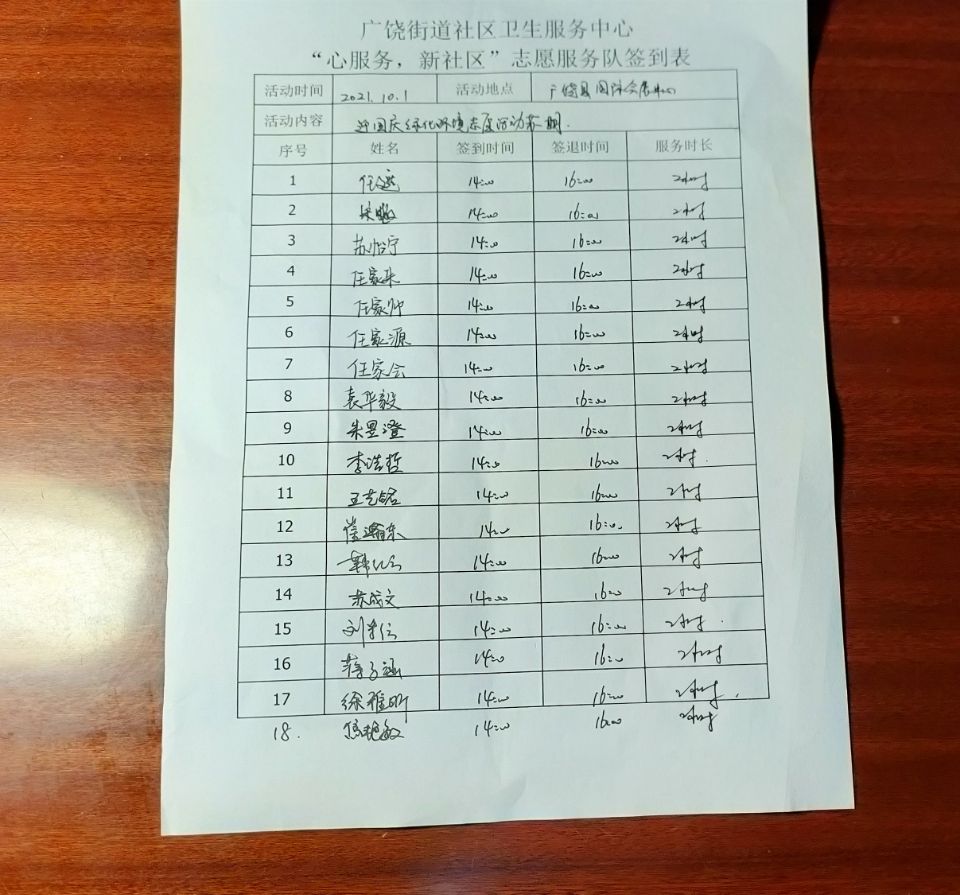 广饶街道社区卫生服务中心
“心服务，新社区”志愿服务队签到表
活动时间 2021.10.1 活动地点 广饶县国际会展中心
活动内容 迎国庆绿化环境
序号 姓名 签到时间 签退时间 服务时长
1 14:00 16:00 2小时
2 14:00 16:00 2小时
3 苏怡宁 14:00 16:00 2小时
4 任家 14:00 16:00 2小时
5 任家帅 14:00 16:00 2小时
6 任家源 14:00 16:00 2小时
7 任家会 14:00 16:00 2小时
8 袁华毅 14:00 16:00 2小时
9 朱昱澄 14:00 16:00 2小时
10 李浩哲 14:00 16:00 2小时.
11 14:00 16:00 2小时
12 14:00 16:00 2小时
13 14:00 16:00 2小时
14 苏成文 14:00 16:00 2小时
15 14:00 16:00 2小时.
16 蒋子涵 14:00 16:00 2小时
17 徐雅昕 14:00 16:00 2小时.
18. 14:00 16:00 2小时